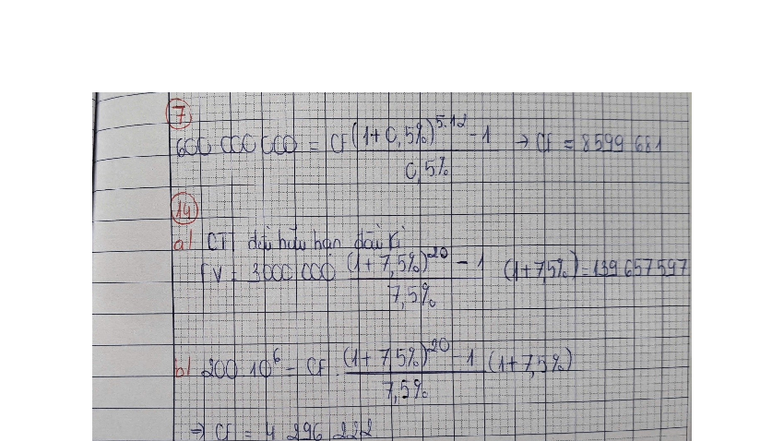 7
600 000 000 = CF (1+0,5%)^5.12 - 1 / 0,5% → CF = 8599 681
14
a) CT đều hữu hạn đầu kì
FV = 3000 000 (1+7,5%)^20 - 1 / 7,5% (1+7,5%) = 139 657 597
b) 200.10^6 = CF . (1+7,5%)^20 - 1 / 7,5% (1+7,5%)
→ CF = 4 296 222